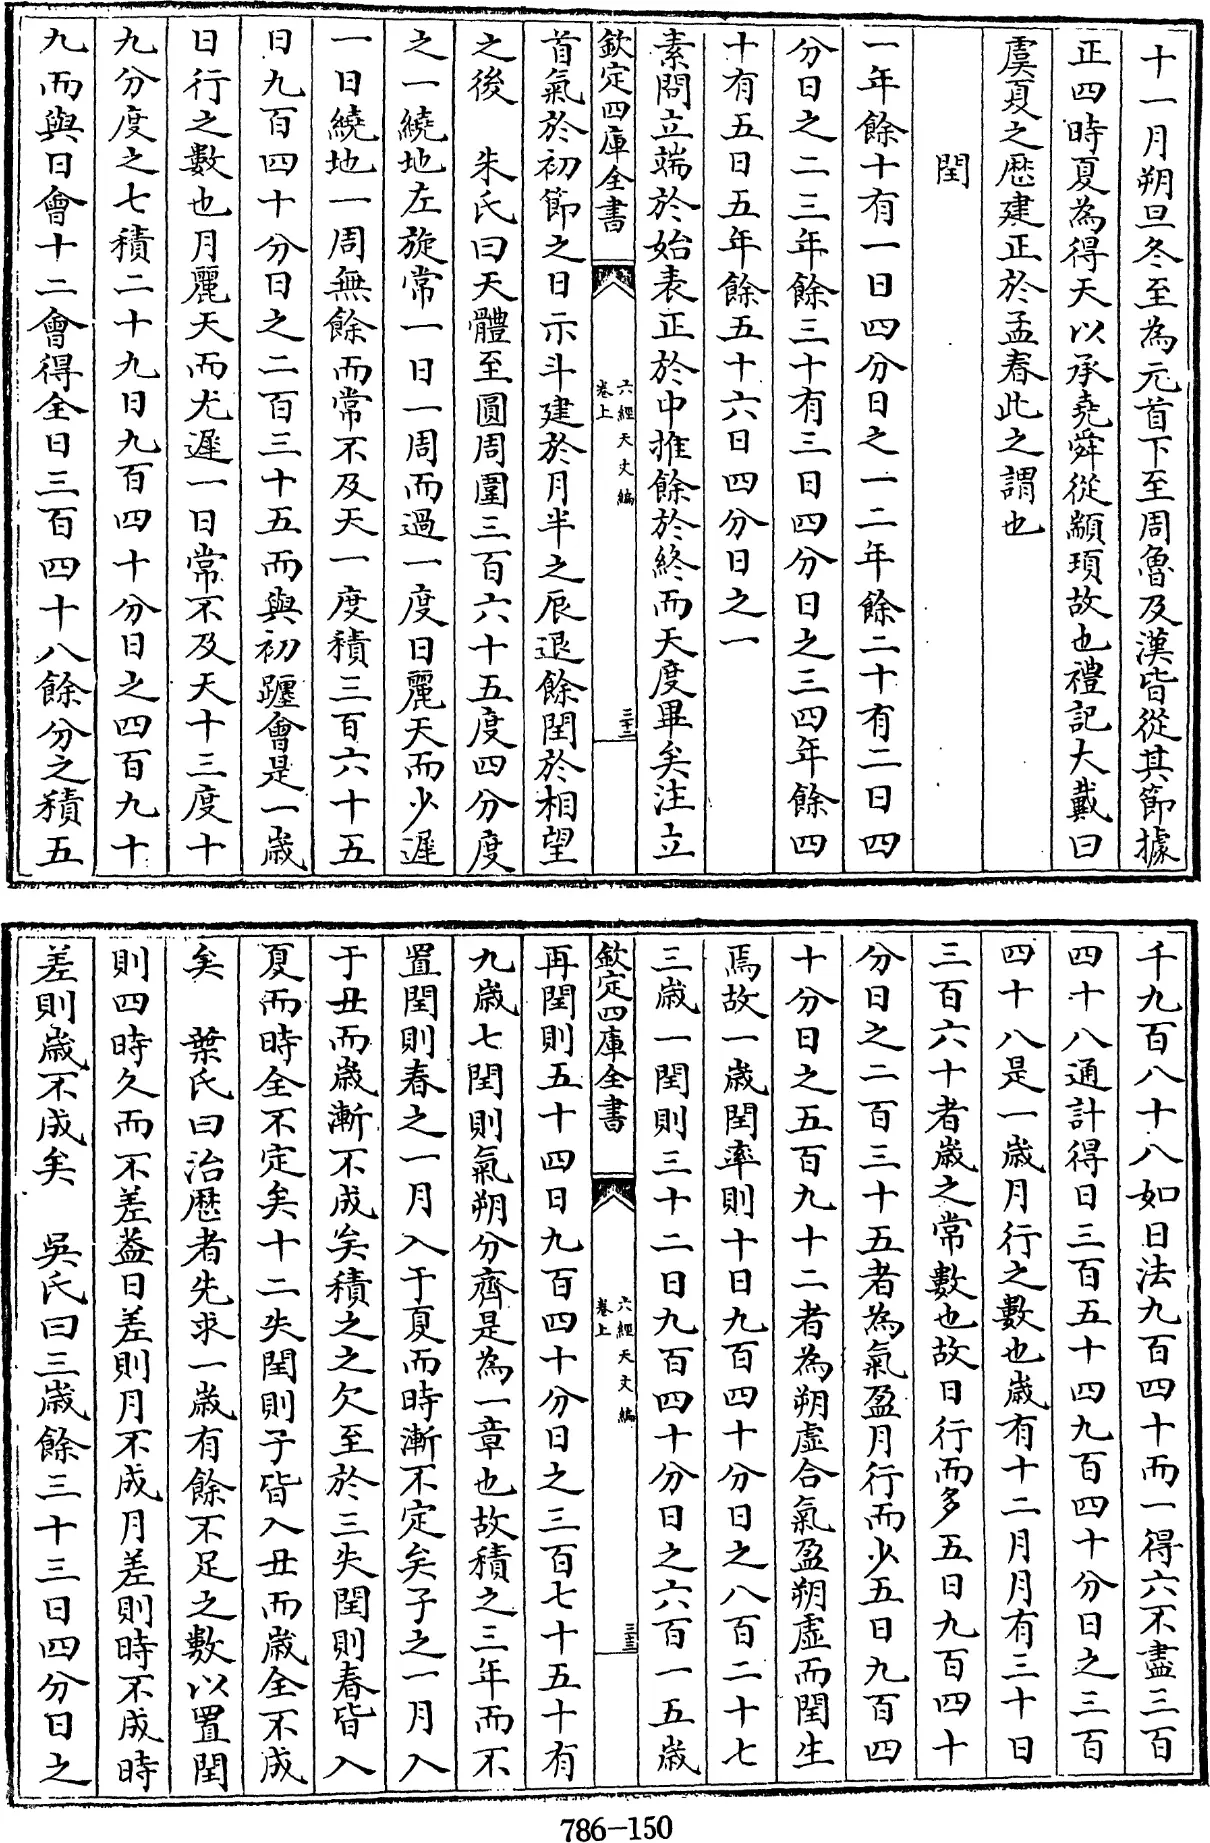 十一月朔旦冬至為元首下至周魯及漢皆從其節據
正四時夏為得天以承堯舜從顓頊故也禮記大戴曰
虞夏之歴建正於孟春此之謂也
閏
一年餘十有一日四分日之一二年餘二十有二日四
分日之二三年餘三十有三日四分日之三四年餘四
十有五日五年餘五十六日四分日之一
素問立端於始表正於中推餘於終而天度畢矣注立
欽定四庫全書
六經天文編
卷上
三十二
首氣於初節之日示斗建於月半之辰退餘閏於相望
之後 朱氏曰天體至圓周圍三百六十五度四分度
之一繞地左旋常一日一周而過一度日麗天而少遲
一日繞地一周無餘而常不及天一度積三百六十五
日九百四十分日之二百三十五而與初躔會是一歳
日行之數也月麗天而尤遲一日常不及天十三度十
九分度之七積二十九日九百四十分日之四百九十
九而與日會十二會得全日三百四十八餘分之積五
千九百八十八如日法九百四十而一得六不盡三百
四十八通計得日三百五十四九百四十分日之三百
四十八是一歳月行之數也歳有十二月月有三十日
三百六十者歳之常數也故日行而多五日九百四十
分日之二百三十五者為氣盈月行而少五日九百四
十分日之五百九十二者為朔虚合氣盈朔虚而閏生
焉故一歳閏率則十日九百四十分日之八百二十七
三歳一閏則三十二日九百四十分日之六百一五歳
欽定四庫全書
六經天文編
卷上
三十三
再閏則五十四日九百四十分日之三百七十五十有
九歳七閏則氣朔分齊是為一章也故積之三年而不
置閏則春之一月入于夏而時漸不定矣子之一月入
于丑而歳漸不成矣積之之欠至於三失閏則春皆入
夏而時全不定矣十二失閏則子皆入丑而歳全不成
矣 葉氏曰治歴者先求一歳有餘不足之數以置閏
則四時久而不差葢日差則月不成月差則時不成時
差則歳不成矣 吳氏曰三歳餘三十三日四分日之
786-150